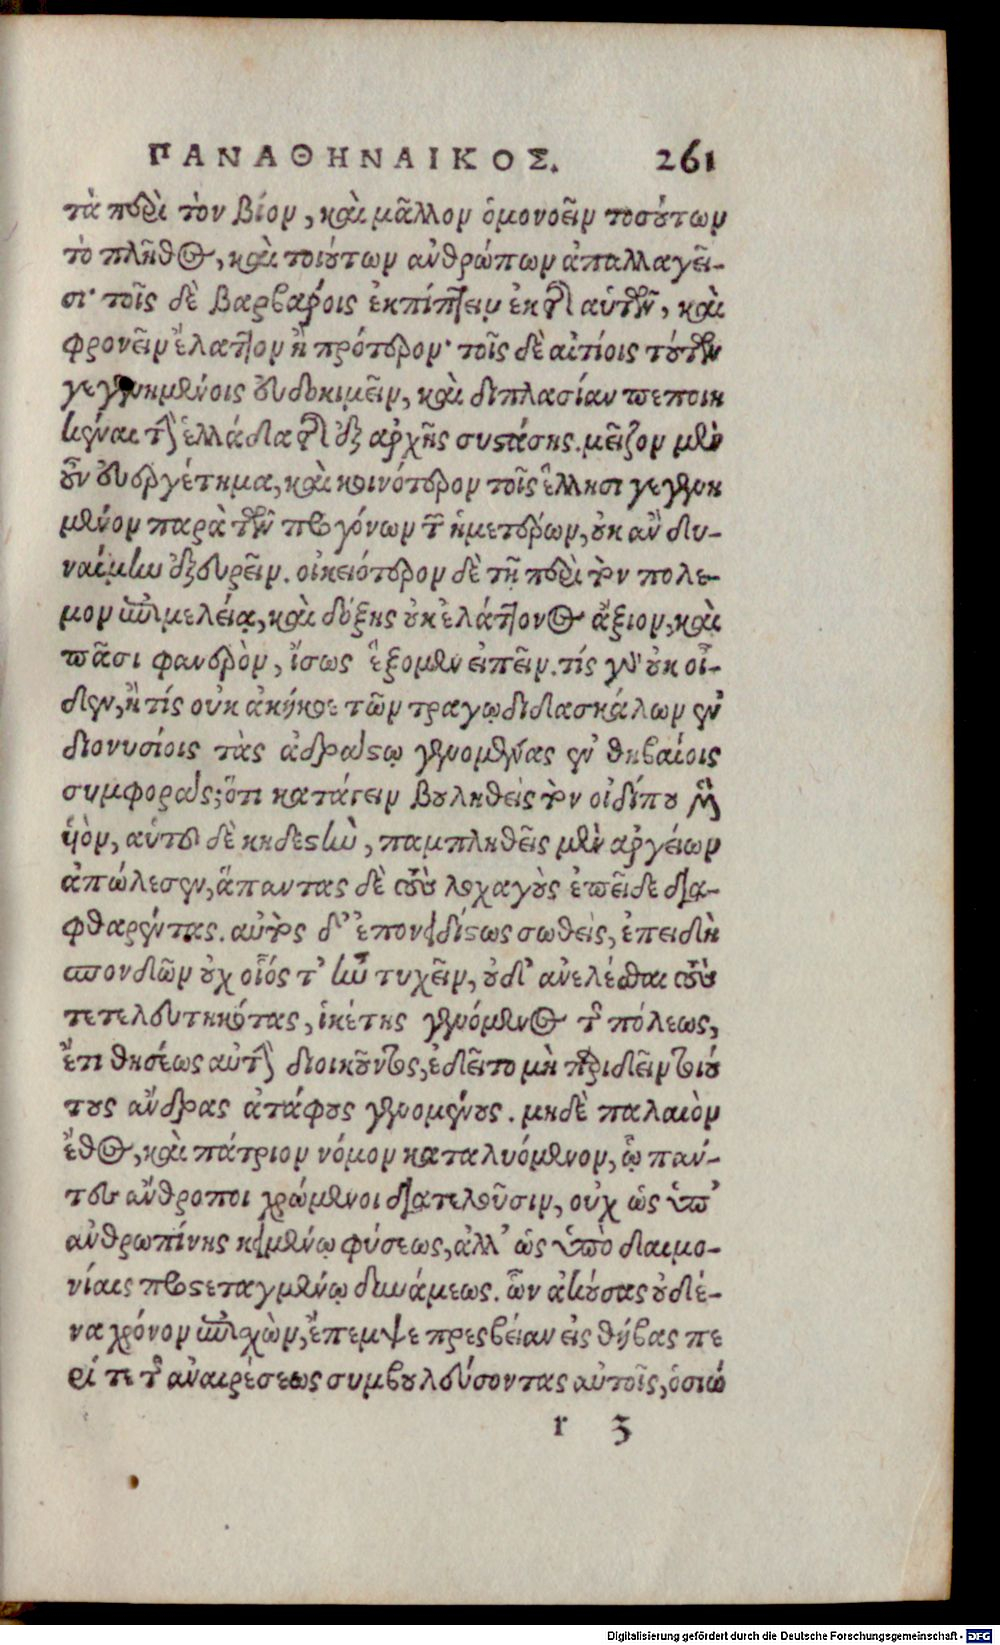 ΠΑΝΑΘΗΝΑΙΚΟΣ. 261
τὰ περὶ τὸν βίον, καὶ μᾶλλον ὁμονοεῖν τοσούτων
τὸ πλῆθος, καὶ τοιούτων ἀνθρώπων ἀπαλλαγεῖ-
σι· τοῖς δὲ βαρβάροις ἐκπίπτειν ἐκ τῆς αὑτῶν, καὶ
φρονεῖν ἔλαττον ἢ πρότερον· τοῖς δὲ αἰτίοις τούτων
γεγενημένοις εὐδοκιμεῖν, καὶ διπλασίαν πεποιη
κέναι τὴν ἑλλάδα τῆς ἐξ ἀρχῆς συστάσης. μεῖζον μὲν
οὖν εὐεργέτημα, καὶ κοινότερον τοῖς ἕλλησι γεγενη
μένον παρὰ τῶν προγόνων τῶν ἡμετέρων, οὐκ ἂν δυ-
ναίμην ἐξευρεῖν. οἰκειότερον δὲ τῇ περὶ τὸν πόλε-
μον ἐπιμελείᾳ, καὶ δόξης οὐκ ἐλάττονος ἄξιον, καὶ
πᾶσι φανερὸν, ἴσως ἕξομεν εἰπεῖν. τίς γὰρ οὐκ οἶ-
δεν, ἢ τίς οὐκ ἀκήκοε τῶν τραγῳδιδιασκάλων ἐν
διονυσίοις τὰς ἀδράστῳ γενομένας ἐν θηβαίοις
συμφοράς; ὅτι κατάγειν βουληθεὶς τὸν οἰδίπου μὲν
ὑὸν, αὑτοῦ δὲ κηδεστὴν, παμπληθεῖς μὲν ἀργείων
ἀπώλεσεν, ἅπαντας δὲ τοὺς λοχαγοὺς ἐπεῖδε δια-
φθαρέντας. αὐτὸς δ' ἐπονειδίστως σωθεὶς, ἐπειδὴ
σπονδῶν οὐχ οἷός τ' ἦν τυχεῖν, οὐδ' ἀνελέσθαι τοὺς
τετελευτηκότας, ἱκέτης γενόμενος τῆς πόλεως,
ἔτι θησέως αὐτὴν διοικοῦντος, ἐδεῖτο μὴ περιιδεῖν τοιού
τους ἄνδρας ἀτάφους γενομένους. μηδὲ παλαιὸν
ἔθος, καὶ πάτριον νόμον καταλυόμενον, ᾧ πάν-
τες ἄνθροποι χρώμενοι διατελοῦσιν, οὐχ ὡς ὑπ'
ἀνθρωπίνης κειμένῳ φύσεως, ἀλλ' ὡς ὑπὸ δαιμο-
νίαις προστεταγμένῳ δυνάμεως. ὧν ἀκούσας οὐδέ-
να χρόνον ἐπισχὼν, ἔπεμψε πρεσβείαν εἰς θήβας πε
ρί τε τῆς ἀναιρέσεως συμβουλεύσοντας αὐτοῖς, ὁσιώ
r 3
Digitalisierung gefördert durch die Deutsche Forschungsgemeinschaft - DFG